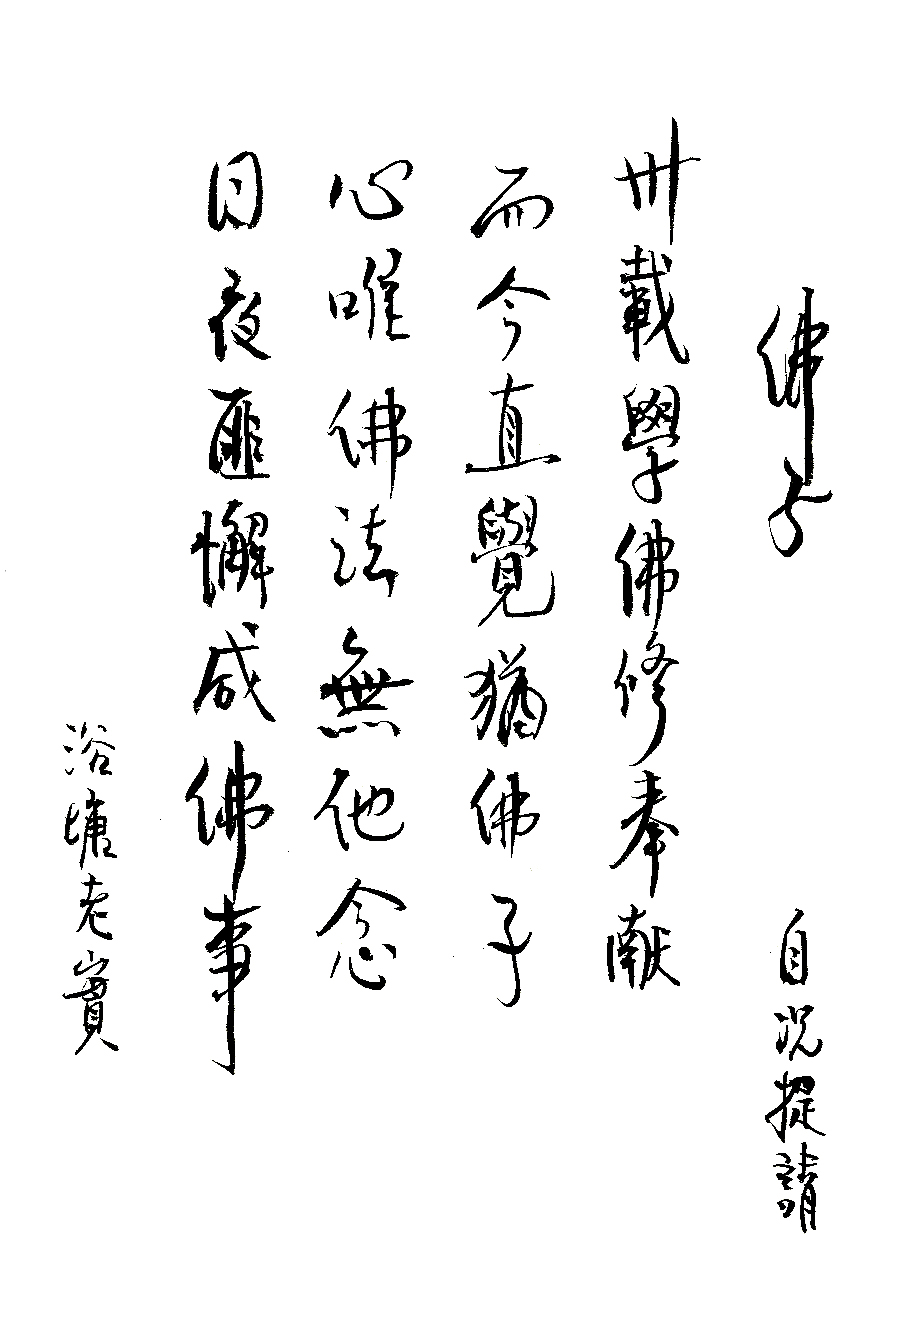 佛子 自况提請
卅載學佛修奉献
而今直覺猶佛子
心唯佛法無他念
日夜匪懈咸佛事
浴墉老實